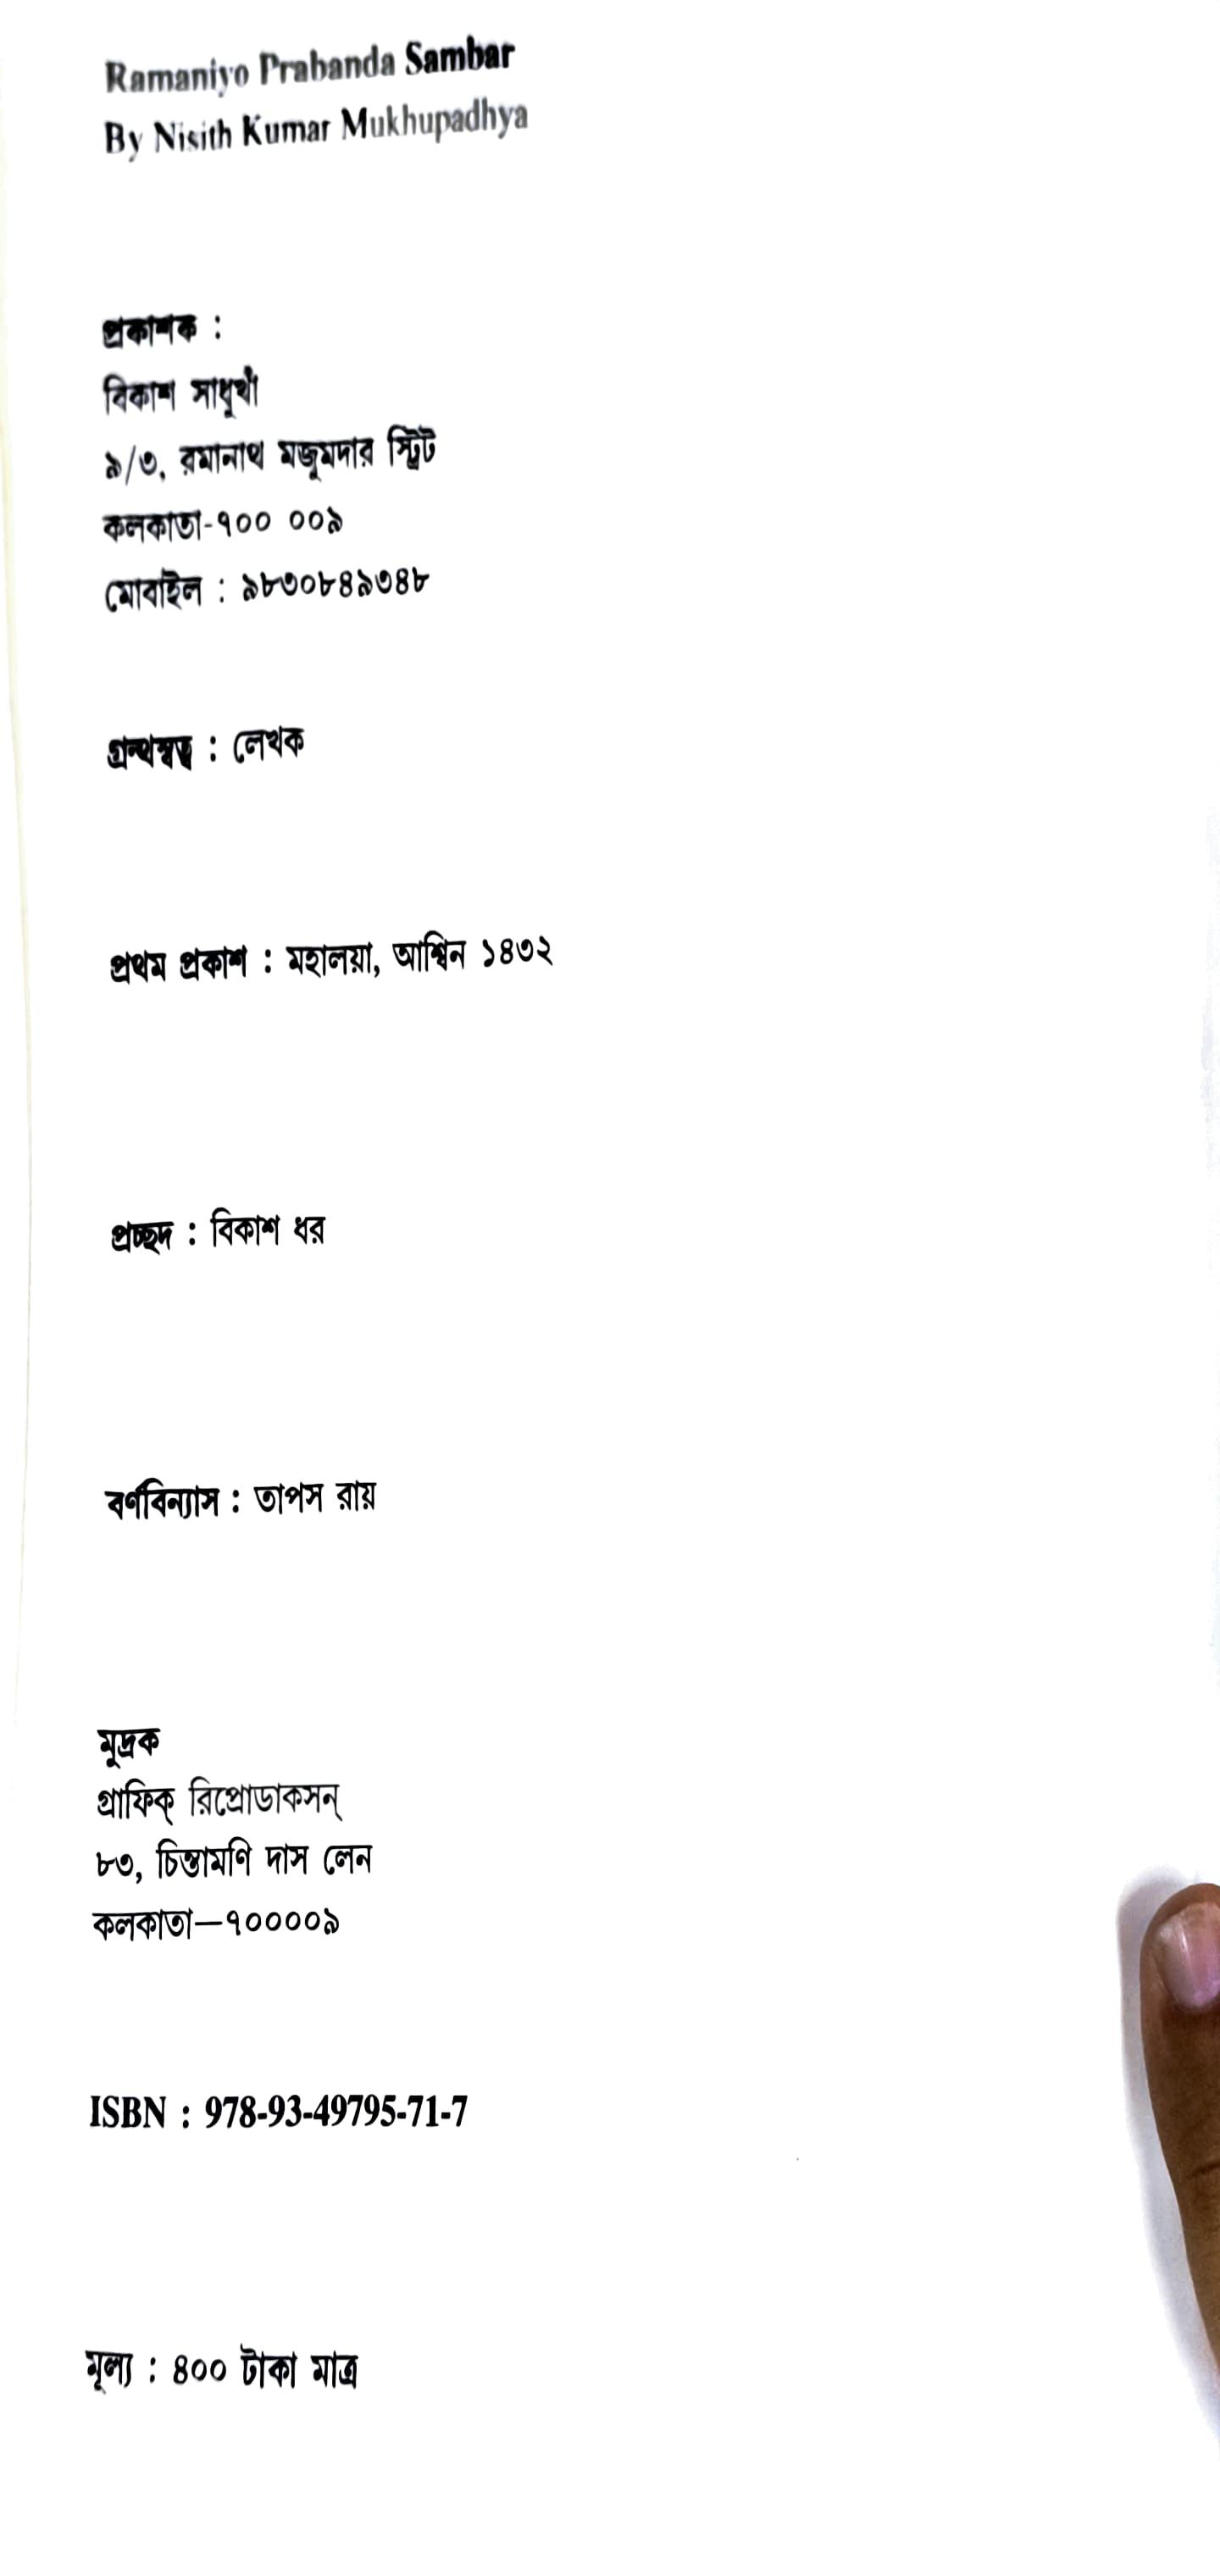 Ramaniyo Prabanda Sambar
By Nisith Kumar Mukhupadhya
প্রকাশক :
বিকাশ সাধুখাঁ
৯/৩, রমানাথ মজুমদার স্ট্রিট
কলকাতা-৭০০ ০০৯
মোবাইল : ৯৮৩০৮৪৯৩৪৮
গ্রন্থস্বত্ব : লেখক
প্রথম প্রকাশ : মহালয়া, আশ্বিন ১৪৩২
প্রচ্ছদ : বিকাশ ধর
বর্ণবিন্যাস : তাপস রায়
মুদ্রক
গ্রাফিক্ রিপ্রোডাকসন্
৮৩, চিন্তামণি দাস লেন
কলকাতা—৭০০০০৯
ISBN : 978-93-49795-71-7
মূল্য : ৪০০ টাকা মাত্র